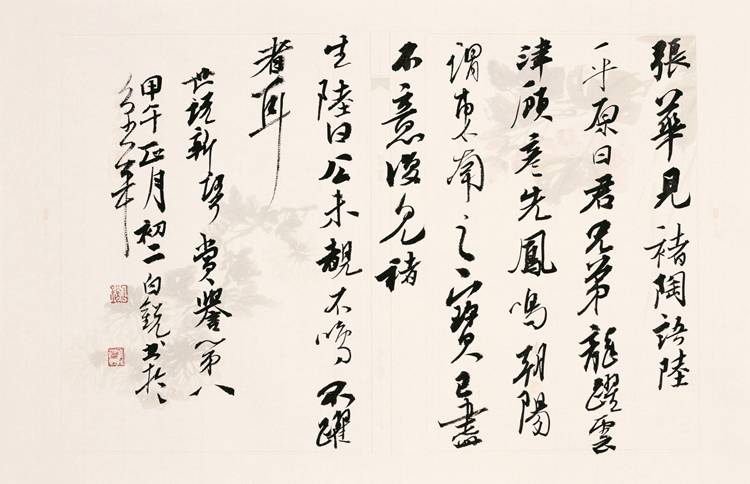 張華見褚陶語陸
平原曰君兄弟龍躍雲
津顧彥先鳳鳴朝陽
謂東南之寶已盡
不意復見褚
生陸曰公未覩不鳴不躍
者耳
世説新語賞譽第八
甲午正月初二白銳書於